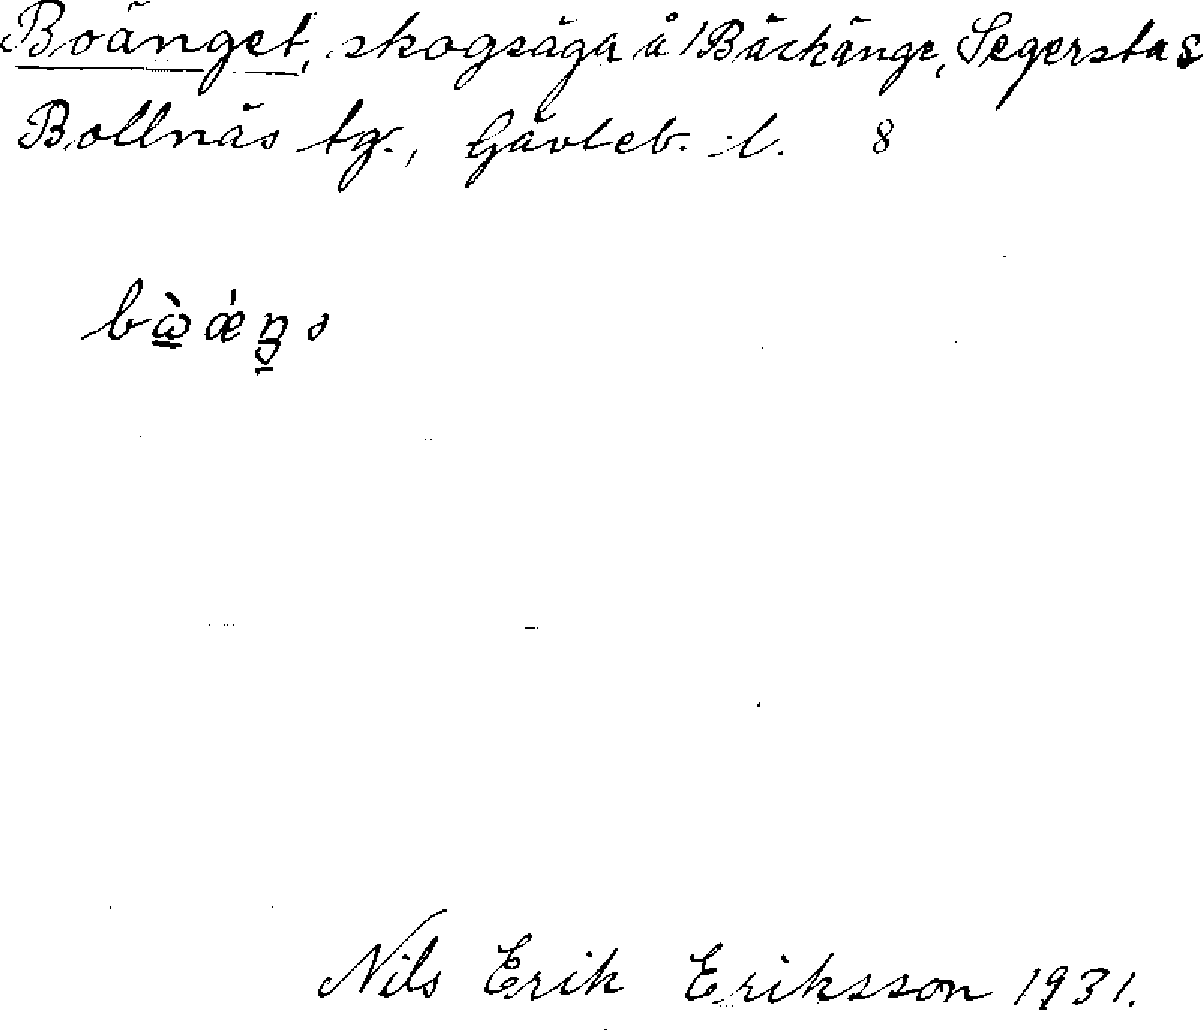 Boänget, skogsäga å Bäckänge, Segersta s
Bollnäs tg., Gävleb. l. 8
Nils Erik Eriksson 1931.